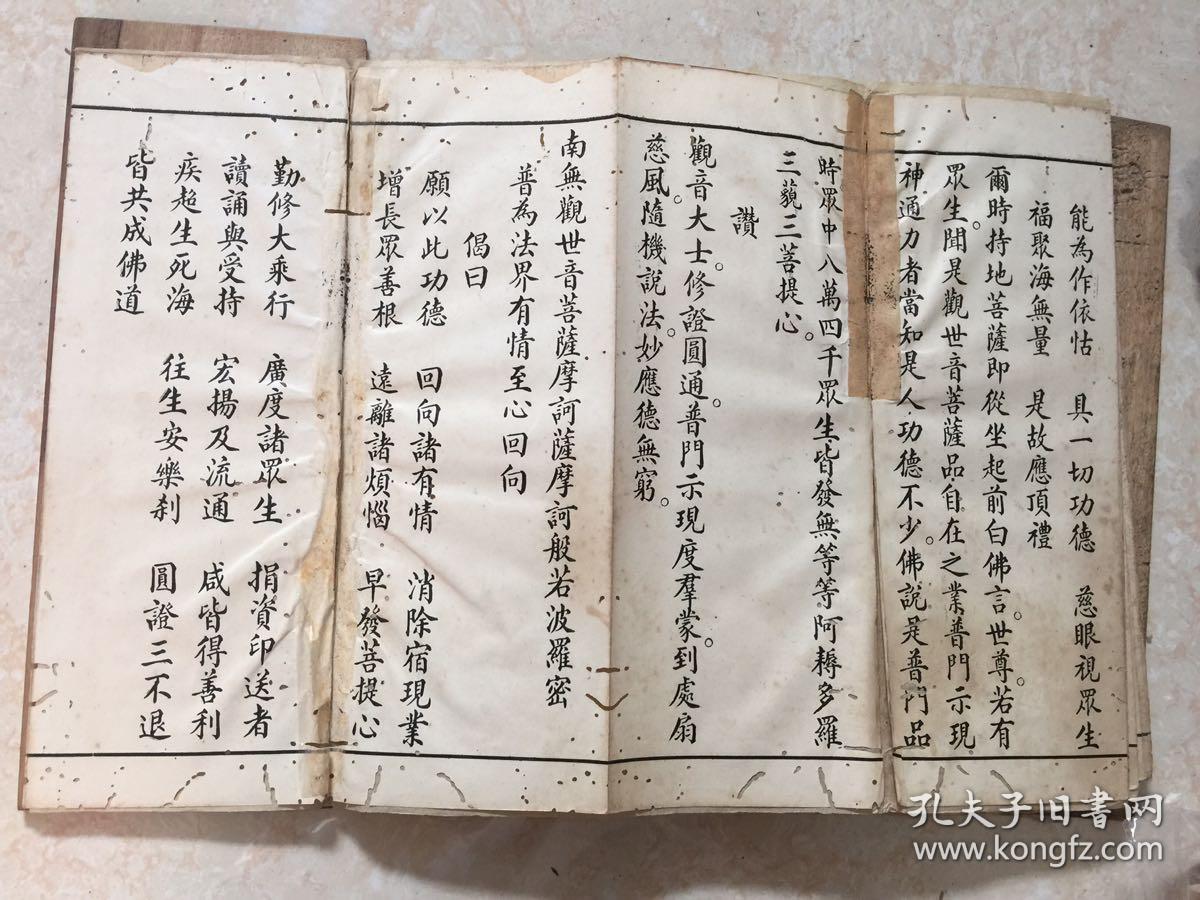 能為作依怙　具一切功德　慈眼視眾生
福聚海無量　是故應頂禮
爾時持地菩薩即從坐起前白佛言。世尊。若有
眾生。聞是觀世音菩薩品自在之業普門示現
神通力者當知是人功德不少。佛說是普門品
時眾中八萬四千眾生皆發無等等阿耨多羅
三藐三菩提心。
讚
觀音大士。修證圓通。普門示現度羣蒙。到處扇
慈風。隨機說法。妙應德無窮。
南無觀世音菩薩摩訶薩摩訶般若波羅密
普為法界有情至心回向
偈曰
願以此功德　回向諸有情　消除宿現業
增長眾善根　遠離諸煩惱　早發菩提心
勤修大乘行　廣度諸眾生　捐資印送者
讀誦與受持　宏揚及流通　咸皆得善利
疾超生死海　往生安樂刹　圓證三不退
皆共成佛道
孔夫子旧书网
www.kongfz.com